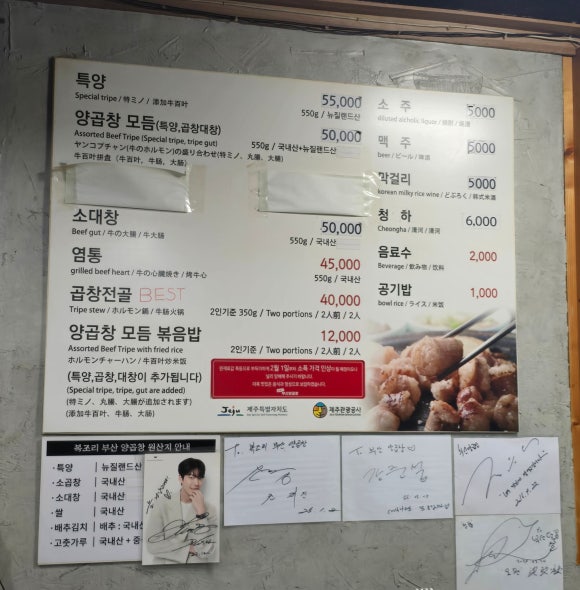 특양 55,000
Special tripe / 特ミノ / 添加牛百叶 550g / 뉴질랜드산
양곱창 모듬(특양,곱창대창) 50,000
Assorted Beef Tripe (Special tripe, tripe gut) 550g / 국내산+뉴질랜드산
ヤンコプチャン(牛のホルモン)の盛り合わせ(特ミノ、丸腸、大腸)
牛百叶拼盘 (牛百叶、牛肠、大肠)
소대창 50,000
Beef gut / 牛の大腸 / 牛大肠 550g / 국내산
염통 45,000
grilled beef heart / 牛の心臓焼き / 烤牛心 550g / 국내산
곱창전골 BEST 40,000
Tripe stew / ホルモン鍋 / 牛肠火锅 2인기준 350g / Two portions / 2人前 / 2人
양곱창 모듬 볶음밥 12,000
Assorted Beef Tripe with fried rice 2인기준 / Two portions / 2人前 / 2人
ホルモンチャーハン / 牛百叶炒米饭
(특양,곱창,대창이 추가됩니다)
(Special tripe, tripe, gut are added)
(特ミノ、丸腸、大腸が追加されます)
(添加牛百叶、牛肠、大肠)
2월 1일부터 소폭 가격 인상
Jeju 제주특별자치도 제주관광공사
소 주 5000
diluted alcholic liquor / 焼酎 / 烧酒
맥 주 5000
beer / ビール / 啤酒
막걸리 5000
korean milky rice wine / どぶろく / 韩式米酒
청 하 6,000
Cheongha / 清河 / 清河
음료수 2,000
Beverage / 飲み物 / 饮料
공기밥 1,000
bowl rice / ライス / 米饭
복조리 부산 양곱창 원산지 안내
· 특양 | 뉴질랜드산
· 소곱창 | 국내산
· 소대창 | 국내산
· 쌀 | 국내산
· 배추김치 | 배추 : 국내산
· 고춧가루 | 국내산 +
T. 복조리 부산 양곱창